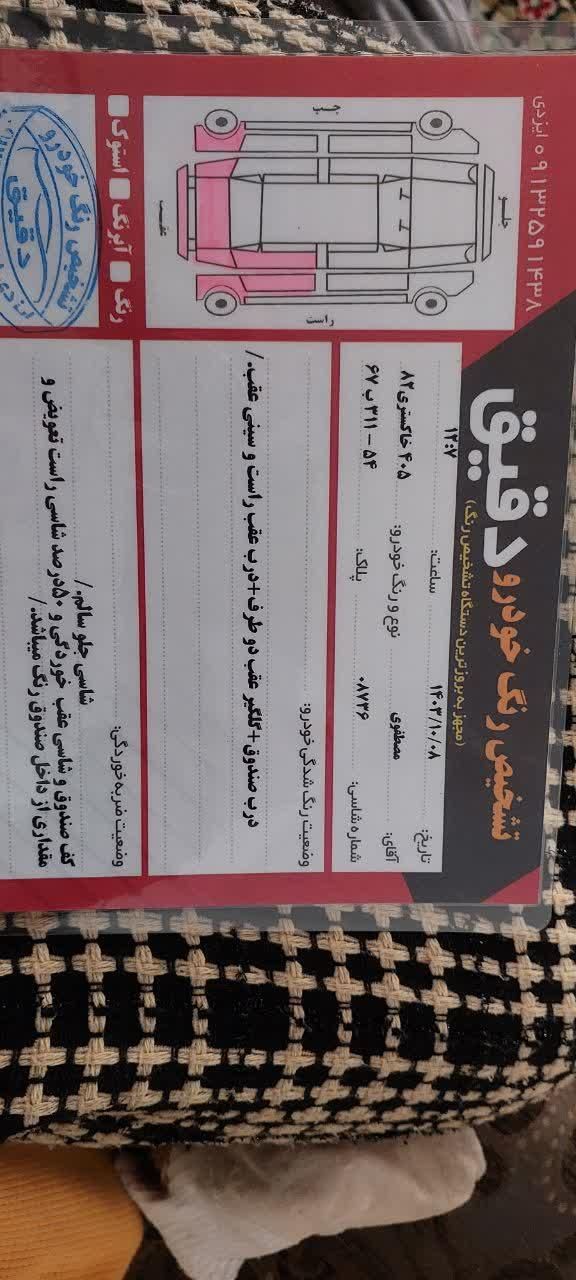 تشخیص رنگ خودرو دقیق
(مجهز به بروزترین دستگاه تشخیص رنگ)
۰۹۱۳۲۵۹۱۴۳۸ ایزدی
تاریخ: ۱۴۰۳/۱۰/۰۸ ساعت: ۱۲:۷
آقای: مصطفوی نوع و رنگ خودرو: ۴۰۵ خاکستری ۸۲
شماره شاسی: ۰۸۷۳۶ پلاک: ۵۴ – ۳۱۱ ب ۶۷
جلو
چپ
راست
عقب
وضعیت رنگ شدگی خودرو:
درب صندوق+گلگیر عقب دو طرف+درب عقب راست و سینی عقب./
رنگ آبرنگ استوک
وضعیت ضربه خوردگی:
شاسی جلو سالم./
کف صندوق و شاسی عقب خوردگی و ۵۰درصد شاسی راست تعویض و
مقداری از داخل صندوق رنگ میباشد./
تشخیص رنگ خودرو
دقیق